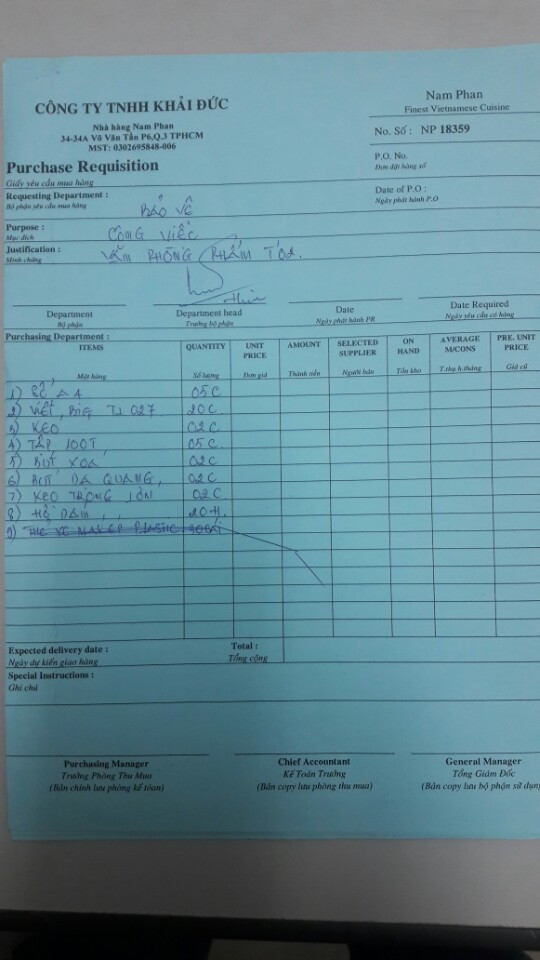 CÔNG TY TNHH KHẢI ĐỨC
Nhà hàng Nam Phan
34-34A Võ Văn Tần P6,Q.3 TPHCM
MST: 0302695848-006
Nam Phan
Finest Vietnamese Cuisine
No. Số : NP 18359
Purchase Requisition
Giấy yêu cầu mua hàng
P.O. No.
Đơn đặt hàng số
Requesting Department : BẢO VỆ
Bộ phận yêu cầu mua hàng
Date of P.O :
Ngày phát hành P.O
Purpose : CÔNG VIỆC
Mục đích
Justification : VĂN PHÒNG PHẨM T02.
Minh chứng
Department
Bộ phận
Department head
Trưởng bộ phận
Date
Ngày phát hành PR
Date Required
Ngày yêu cầu có hàng
Purchasing Department :
ITEMS QUANTITY UNIT PRICE AMOUNT SELECTED SUPPLIER ON HAND AVERAGE M/CONS PRE. UNIT PRICE
Mặt hàng Số lượng Đơn giá Thành tiền Người bán Tồn kho T.thụ h.tháng Giá cũ
1) SỔ A4 05C
2) VIẾT, BIG TL 027 20C
3) KEO 02C
4) TẬP 100T 05C
5) BÚT XOÁ 02C
6) BÚT DẠ QUANG, 02C
7) KEO TRONG LỚN 02C
8) HỒ DÁN 20H.
9) THẺ
Expected delivery date :
Ngày dự kiến giao hàng
Total :
Tổng cộng
Special Instructions :
Ghi chú
Purchasing Manager
Trưởng Phòng Thu Mua
(Bản chính lưu phòng kế tóan)
Chief Accountant
Kế Toán Trưởng
(Bản copy lưu phòng thu mua)
General Manager
Tổng Giám Đốc
(Bản copy lưu bộ phận sử dụng